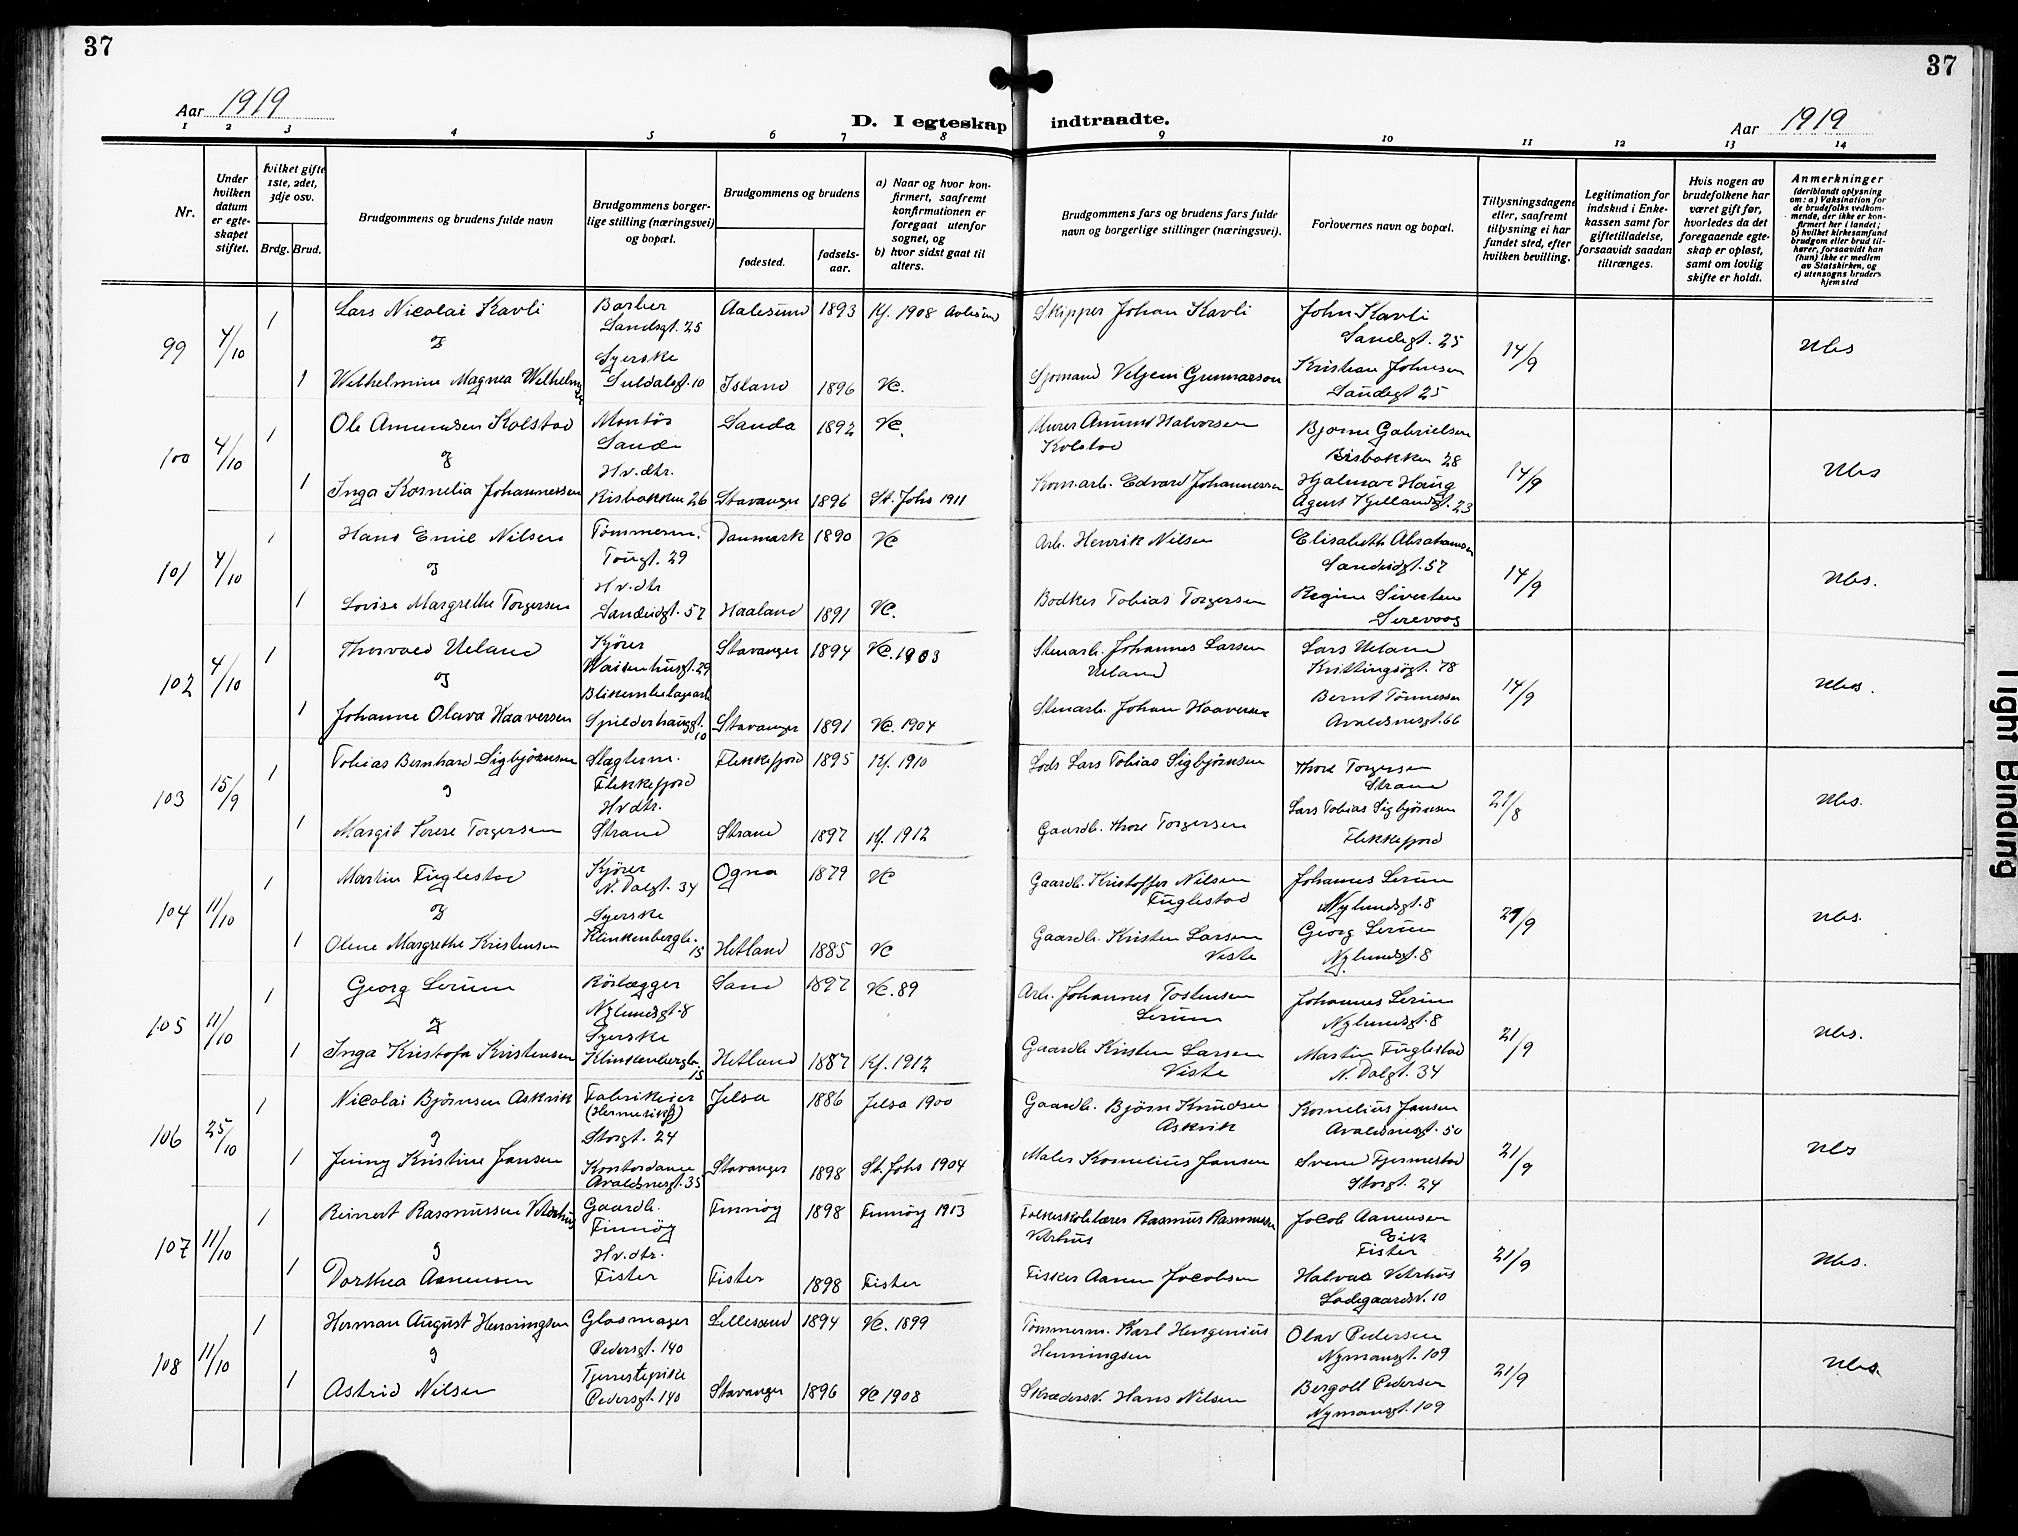 37
37
Aar 1919
D. I egteskap indtraadte.
Aar 1919
1 2 3 4 5 6 7 8 9 10 11 12 13 14
Nr.
Under hvilken datum er egteskapet stiftet.
hvilket gifte 1ste, 2det, 3dje osv.
Brdg. Brud.
Brudgommens og brudens fulde navn
Brudgommens borgerlige stilling (næringsvei) og bopæl.
Brudgommens og brudens
fødested.
fødselsaar.
a) Naar og hvor konfirmert, saafremt konfirmationen er foregaat utenfor sognet, og
b) hvor sidst gaat til alters.
Brudgommens fars og brudens fars fulde navn og borgerlige stillinger (næringsvei).
Forlovernes navn og bopæl.
Tillysningsdagene eller, saafremt tillysning ei har fundet sted, efter hvilken bevilling.
Legitimation for indskud i Enkekassen samt for giftetilladelse, forsaavidt saadan tiltrænges.
Hvis nogen av brudefolkene har været gift før, hvorledes da det foregaaende egteskap er opløst, samt om lovlig skifte er holdt.
Anmerkninger
(deriblandt oplysning om: a) Vaksination for de brudefolks vedkommende, der ikke er konfirmert her i landet; b) hvilket kirkesamfund brudgom eller brud tilhører, forsaavidt han (hun) ikke er medlem av Statskirken, og c) utensogns bruders hjemsted
99 4/10 1 Lars Nicolai Kavli Barber Sandsgt. 25 Aalesund 1893 Kf. 1908 Aalesund Skipper Johan Kavli John Kavli Sandsgt. 25 14/9
og
1 Wilhelmine Magnea Syerske Suldalsgt. 10 Island 1896 Gunnarson Kristian Johnsen Sandsgt 25
100 4/10 1 Ole Amundsen Kolstad Montør Sande Sanda 1892 Murer Amund Halvorsen Kolstad Bjarne Gabrielsen 28 14/9
og
1 Inga Kornelia Johannessen Hv.dtr. Risbakken 26 Stavanger 1896 St. Johs 1911 Edvard Johannessen Hjalmar Haug Agent Kjellandsgt. 23
101 4/10 1 Hans Emil Nilsen Tømmerm. Tougt. 29 Danmark 1890 Arb. Henrik Nilsen Elisabeth Abrahamsen 14/9
og
1 Lovise Margrethe Torgersen Hv.dtr 57 Haaland 1891 Bødker Tobias Torgersen Regine Sivertsen Sirevaag
102 4/10 1 Thorvald Ueland Kjører Waisenhusgt. 29 Stavanger 1894 1903 Stenarb. Johannes Larsen Ueland Lars Ueland 78 14/9
og
1 Johanne Olava Haaversen Spilderhaugsgt. 10 Stavanger 1891 1904 Stenarb. Johan Haaversen Bernt Tønnessen Avaldsnesgt. 66
103 15/9 1 Tobias Bernhard Sigbjørnsen Flekkefjord Flekkefjord 1895 Kf. 1910 Lods Lars Tobias Sigbjørnsen Thore Torgersen Strand 21/8
1 Margit Serese Torgersen Hv.dtr. Strand Strand 1897 Kf. 1912 Gaardb. Thore Torgersen Lars Tobias Sigbjørnsen Flekkefjord
104 11/10 1 Martin Fuglestad Kjører N. Dalgt. 34 Ogna 1879 Gaardb. Kristoffer Nilsen Fuglestad Johannes Serum Nylundsgt. 8 21/9
og
1 Oline Margrethe Kristensen Syerske Klinkenbergb. 15 Hetland 1885 Gaardb. Kristen Larsen Viste Georg Serum Nylundsgt. 8
105 11/10 1 Georg Serum Rørlægger Nylundsgt. 8 Sand 1897 89 Arb. Johannes Tostensen Serum Johannes Serum Nylundsgt. 8 21/9
og
1 Inga Kristofa Kristensen Syerske Klinkenbergb. 15 Hetland 1887 Kf. 1912 Gaardb Kristen Larsen Viste Martin Fuglestad N. Dalgt. 34
106 25/10 1 Nicolai Bjørnsen Askvik Fabrikeier Storgt. 24 Jelsa 1886 Jelsa 1900 Gaardb. Bjørn Knudsen Askvik Kornelius Jansen Avaldsnesgt. 50 21/9
1 Jenny Kristine Jansen Kontordame Avaldsnesgt. 35 Stavanger 1898 St. Johs 1904 Maler Kornelius Jansen Svend Tjermestad Storgt. 24
107 11/10 1 Reinert Rasmussen Vetrhus Gaardb. Finnøy Finnøy 1898 Finnøy 1913 Folkeskolelærer Rasmus Rasmussen Vetrhus Jacob Aanensen Eik Fister 21/9
1 Dorthea Aanensen Hv.dtr. Fister Fister 1898 Fister Fisker Aanen Jacobsen Halvar Vetrhus Ladegaardsv. 10
108 11/10 1 Herman August Henningsen Glasmager Pedersgt. 140 Lillesand 1894 1899 Tømmerm. Karl Henningsen Olav Pedersen Nymansgt. 109 21/9
1 Astrid Nilsen Tjenestepike Pedersgt. 140 Stavanger 1896 1908 Hans Nilsen Pedersen Nymansgt. 109
Tight Binding